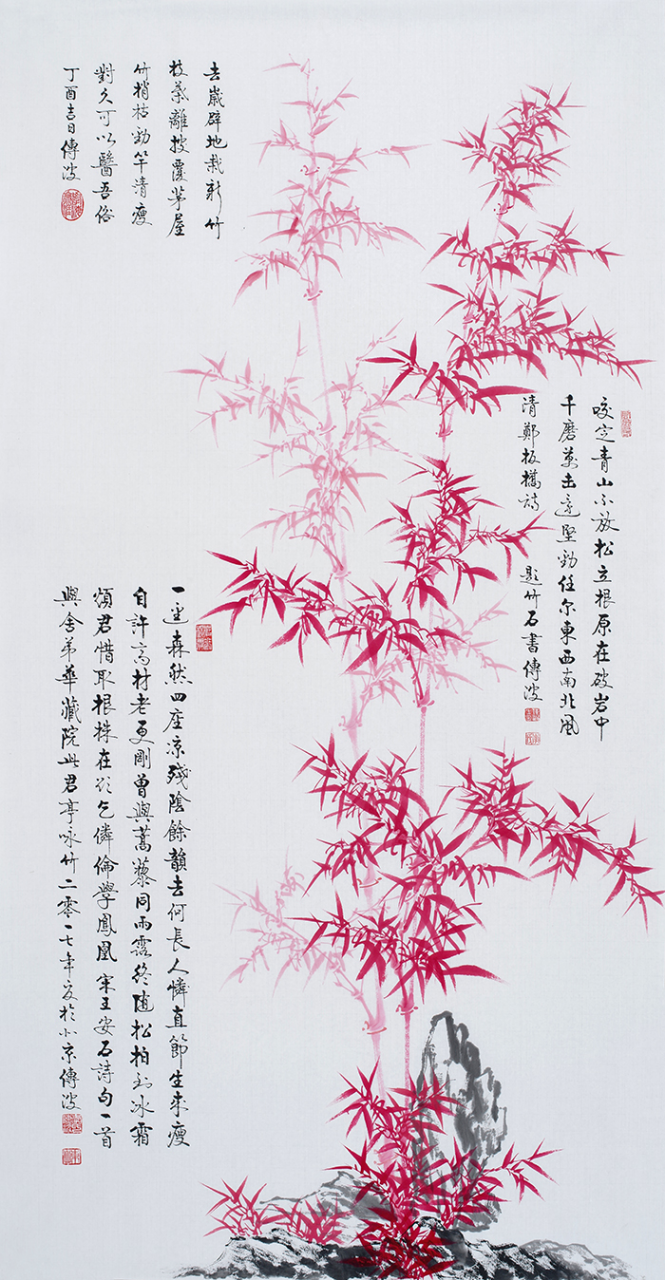 去歲辟地栽新竹
枝葉離披覆茅屋
竹梢枯勁竿清瘦
對久可以醫吾俗
丁酉吉日傅波
咬定青山不放松立根原在破岩中
千磨萬击還堅勁任尔東西南北風
清鄭板橋詩 題竹石書傅波
一逕森然四座凉殘陰餘韻去何長人憐直節生來瘦
自許高材老更剛曾與蒿藜同雨露終隨松柏到冰霜
煩君惜取根株在欲乞憐倫學鳳凰宋王安石詩句一首
與舍弟華藏院此君亭咏竹二零一七年夏於北京傅波